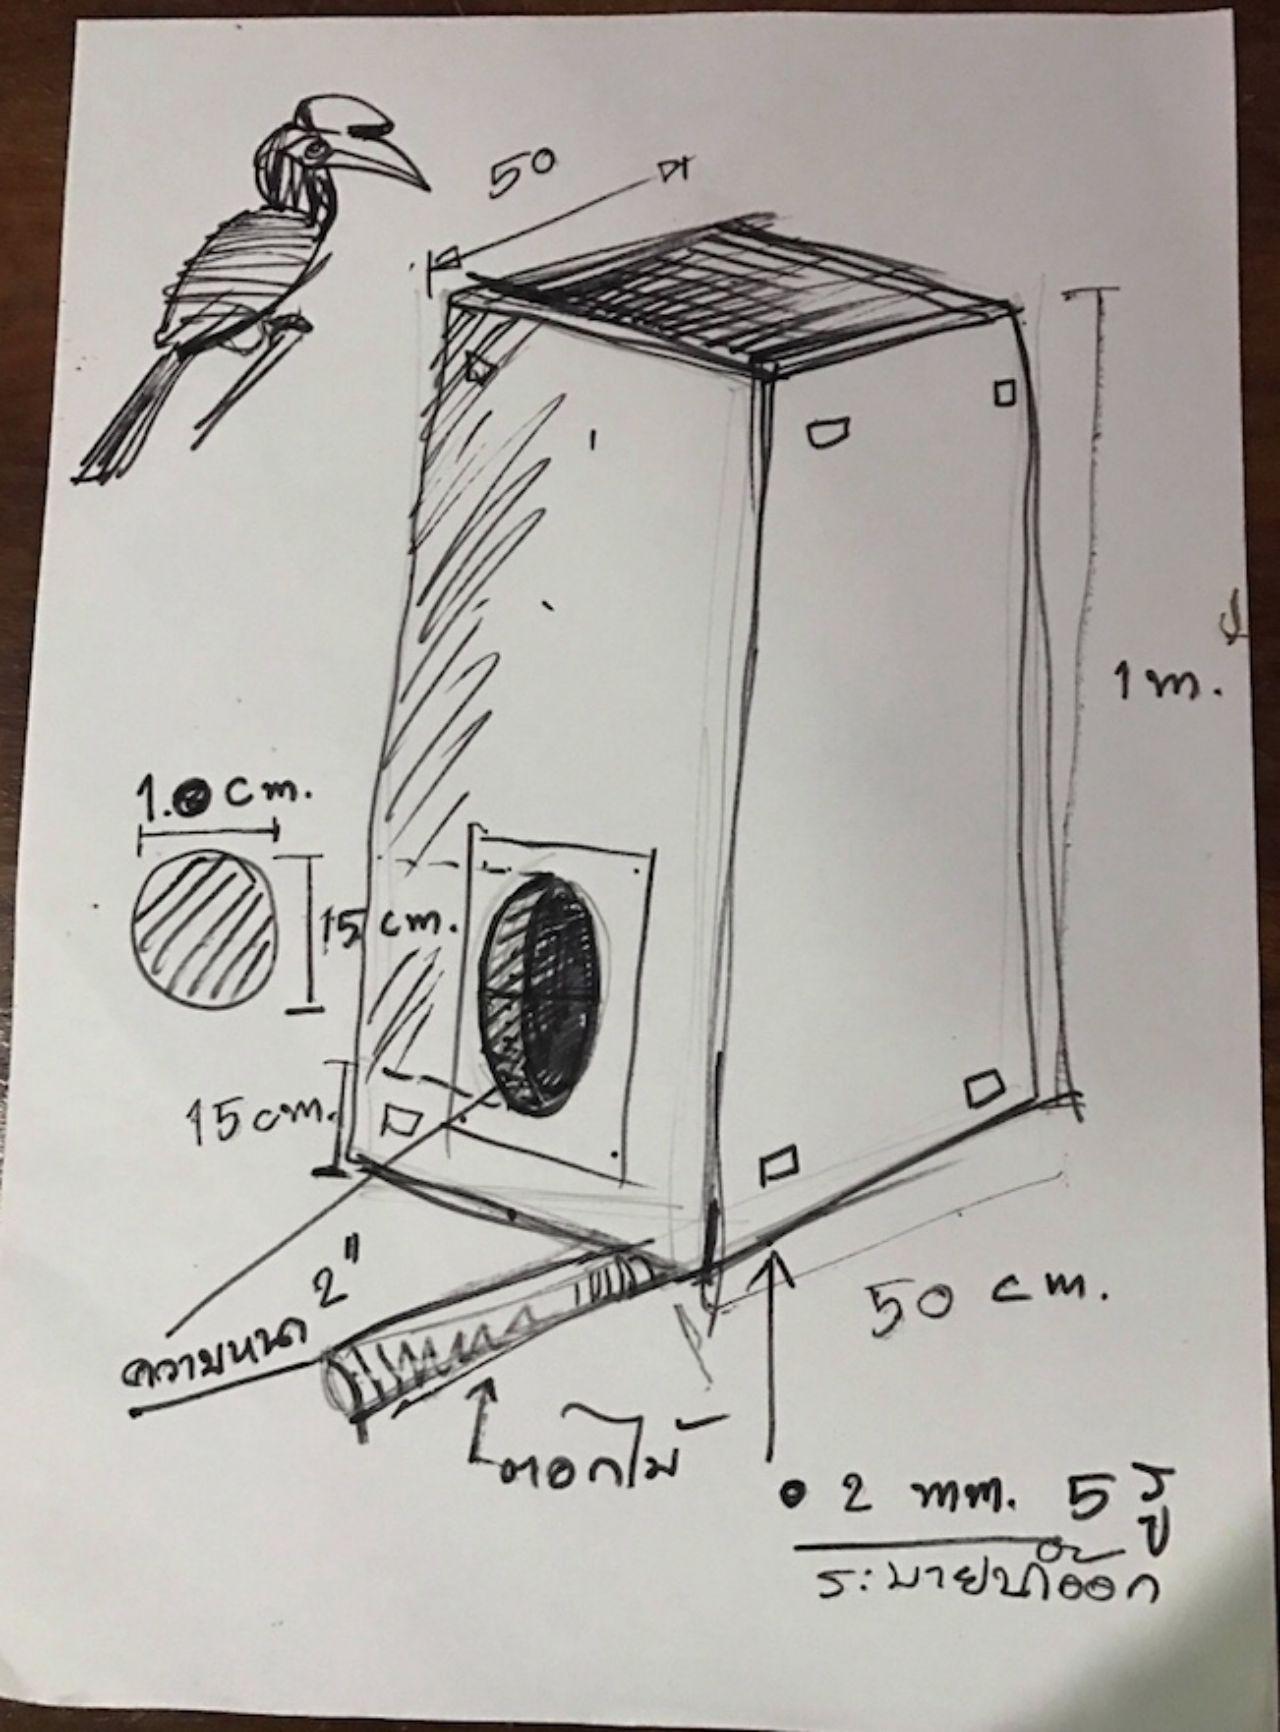 50
1 m.
cm.
15 cm.
15 cm.
2"
ความหนา
50 cm.
ตอกไม้
• 2 mm. 5 รู
ระบายน้ำออก